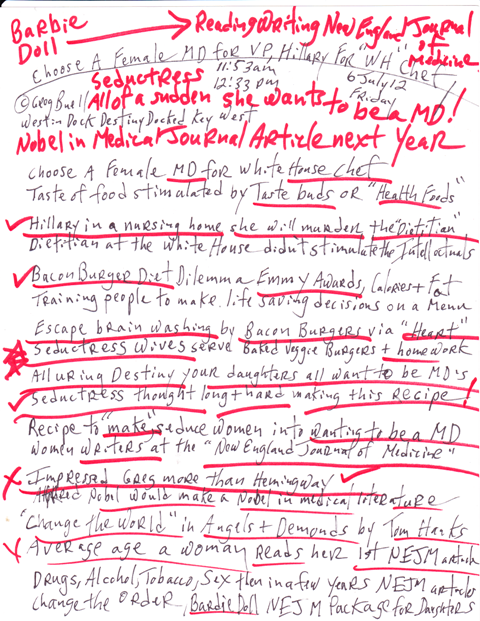 Barbie Doll → Reading Writing New England Journal of Medicine
Choose A Female MD for VP, Hillary For "WH" Chef
Seductress 11:53am 6 July 12
12:33 pm Friday
©Greg Buell All of a sudden she wants to be a MD!
Westin Dock Destiny Docked Key West
Nobel in Medical Journal Article next year
Choose A Female MD for White House Chef
Taste of food stimulated by Taste buds or "Health Foods"
Hillary in a nursing home she will murder the "Dietitian"
Dietitian at the White House didn't stimulate the Intellectuals
Bacon Burger Diet Dilemma Emmy Awards, Calories + Fat
Training people to make life saving decisions on a Menu
Escape brain washing by Bacon Burgers via "Heart"
Seductress wives serve Baked Veggie Burgers + homework
Alluring Destiny your daughters all want to be MD's
Seductress thought long + hard making this recipe!
Recipe to "make" seduce women into wanting to be a MD
Women writers at the "New England Journal of Medicine"
Impressed Greg more than Hemingway
Nobel would make a Nobel in medical literature
"Change the World" in Angels + Demonds by Tom Hanks
Average age a woman reads her 1st NEJM article
Drugs, Alcohol, Tobacco, Sex then in a few years NEJM articles
change the order, Bardie Doll NEJM Package for Daughters